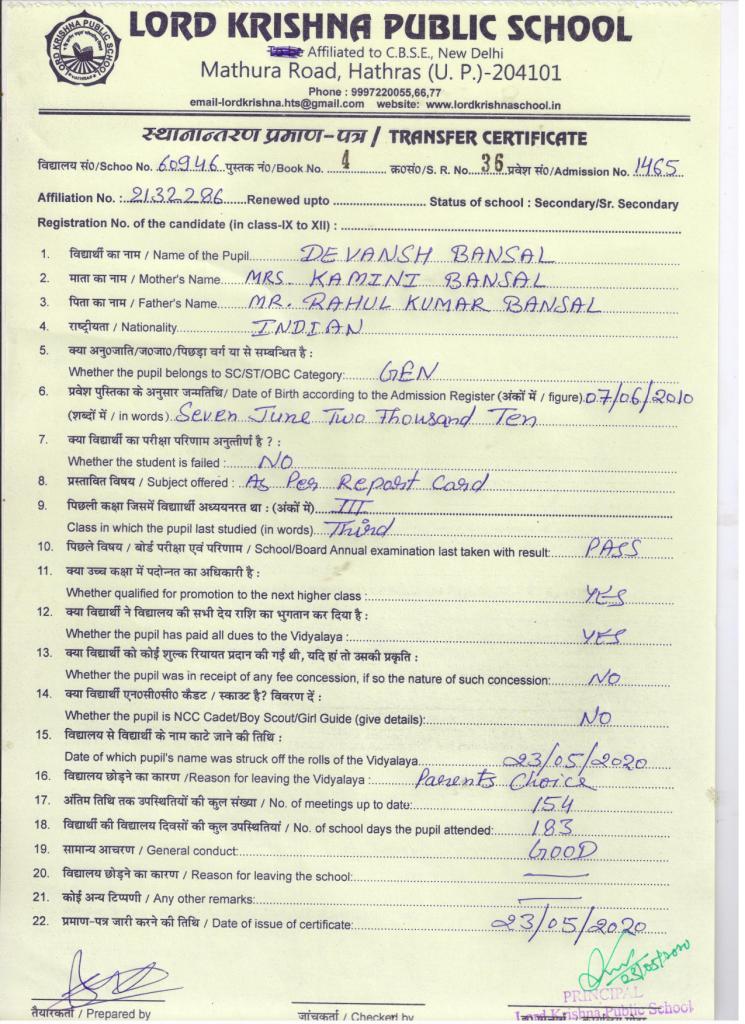 LORD KRISHNA PUBLIC SCHOOL
Affiliated to C.B.S.E., New Delhi
Mathura Road, Hathras (U. P.)-204101
Phone : 9997220055,66,77
email-lordkrishna.hts@gmail.com website: www.lordkrishnaschool.in
स्थानान्तरण प्रमाण-पत्र / TRANSFER CERTIFICATE
विद्यालय सं०/Schoo No. 60946 पुस्तक नं०/Book No. 4 क्र०सं०/S. R. No. 36 प्रवेश सं०/Admission No. 1465
Affiliation No. : 2132286 Renewed upto Status of school : Secondary/Sr. Secondary
Registration No. of the candidate (in class-IX to XII) :
1. विद्यार्थी का नाम / Name of the Pupil DEVANSH BANSAL
2. माता का नाम / Mother's Name MRS. KAMINI BANSAL
3. पिता का नाम / Father's Name MR. RAHUL KUMAR BANSAL
4. राष्ट्रीयता / Nationality INDIAN
5. क्या अनु०जाति/ज०जा०/पिछड़ा वर्ग या से सम्बन्धित है :
Whether the pupil belongs to SC/ST/OBC Category: GEN
6. प्रवेश पुस्तिका के अनुसार जन्मतिथि/ Date of Birth according to the Admission Register (अंकों में / figure) 07/06/2010
(शब्दों में / in words) Seven June Two Thousand Ten
7. क्या विद्यार्थी का परीक्षा परिणाम अनुत्तीर्ण है ? :
Whether the student is failed : NO
8. प्रस्तावित विषय / Subject offered : As Per Report Card
9. पिछली कक्षा जिसमें विद्याार्थी अध्ययनरत था : (अंकों में) III
Class in which the pupil last studied (in words) Third
10. पिछले विषय / बोर्ड परीक्षा एवं परिणाम / School/Board Annual examination last taken with result: PASS
11. क्या उच्च कक्षा में पदोन्नत का अधिकारी है :
Whether qualified for promotion to the next higher class : YES
12. क्या विद्यार्थी ने विद्यालय की सभी देय राशि का भुगतान कर दिया है :
Whether the pupil has paid all dues to the Vidyalaya : YES
13. क्या विद्यार्थी को कोई शुल्क रियायत प्रदान की गई थी, यदि हां तो उसकी प्रकृति :
Whether the pupil was in receipt of any fee concession, if so the nature of such concession: NO
14. क्या विद्यार्थी एन०सी०सी० कैडट / स्काउट है? विवरण दें :
Whether the pupil is NCC Cadet/Boy Scout/Girl Guide (give details): NO
15. विद्यालय से विद्यार्थी के नाम काटे जाने की तिथि :
Date of which pupil's name was struck off the rolls of the Vidyalaya 23/05/2020
16. विद्यालय छोड़ने का कारण /Reason for leaving the Vidyalaya : Parents Choice
17. अंतिम तिथि तक उपस्थितियों की कुल संख्या / No. of meetings up to date: 154
18. विद्यार्थी की विद्यालय दिवसों की कुल उपस्थितियां / No. of school days the pupil attended: 183
19. सामान्य आचरण / General conduct: GOOD
20. विद्यालय छोड़ने का कारण / Reason for leaving the school:
21. कोई अन्य टिप्पणी / Any other remarks:
22. प्रमाण-पत्र जारी करने की तिथि / Date of issue of certificate: 23/05/2020
23/05/2020
PRINCIPAL
Lord Krishna Public School
तैयारकर्ता / Prepared by जांचकर्ता / Checked by